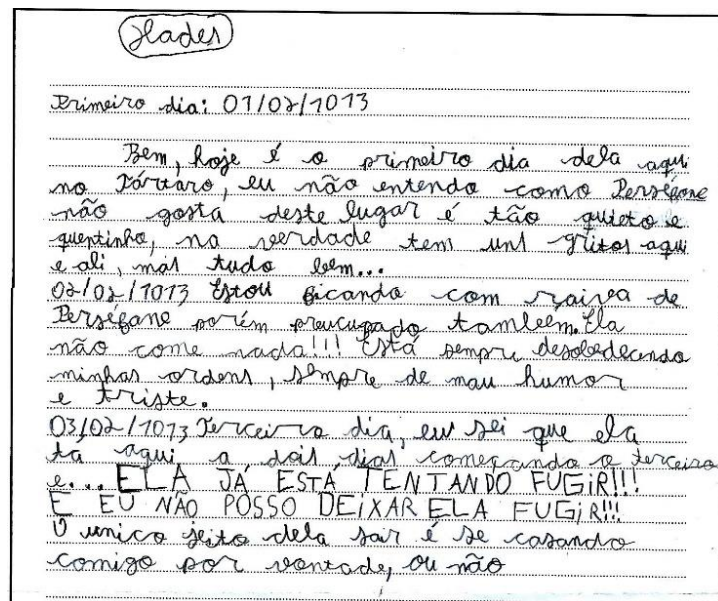 Hades
Primeiro dia: 01/02/1013
Bem, hoje é o primeiro dia dela aqui
no Tártaro, eu não entendo como Perséfone
não gosta deste lugar é tão quieto e
quentinho, na verdade tem uns gritos aqui
e ali, mas tudo bem...
02/02/1013 Estou ficando com raiva de
Perséfane porém preucupado também. Ela
não come nada!!! Está sempre desobedecendo
minhas ordens, sempre de mau humor
e triste.
03/02/1013 Terceiro dia, eu sei que ela
ta aqui a dois dias começando o terceiro
e... ELA JÁ ESTÁ TENTANDO FUGIR!!!
E EU NÃO POSSO DEIXAR ELA FUGIR!!!
O unico jeito dela sair é se casando
comigo por vontade, ou não